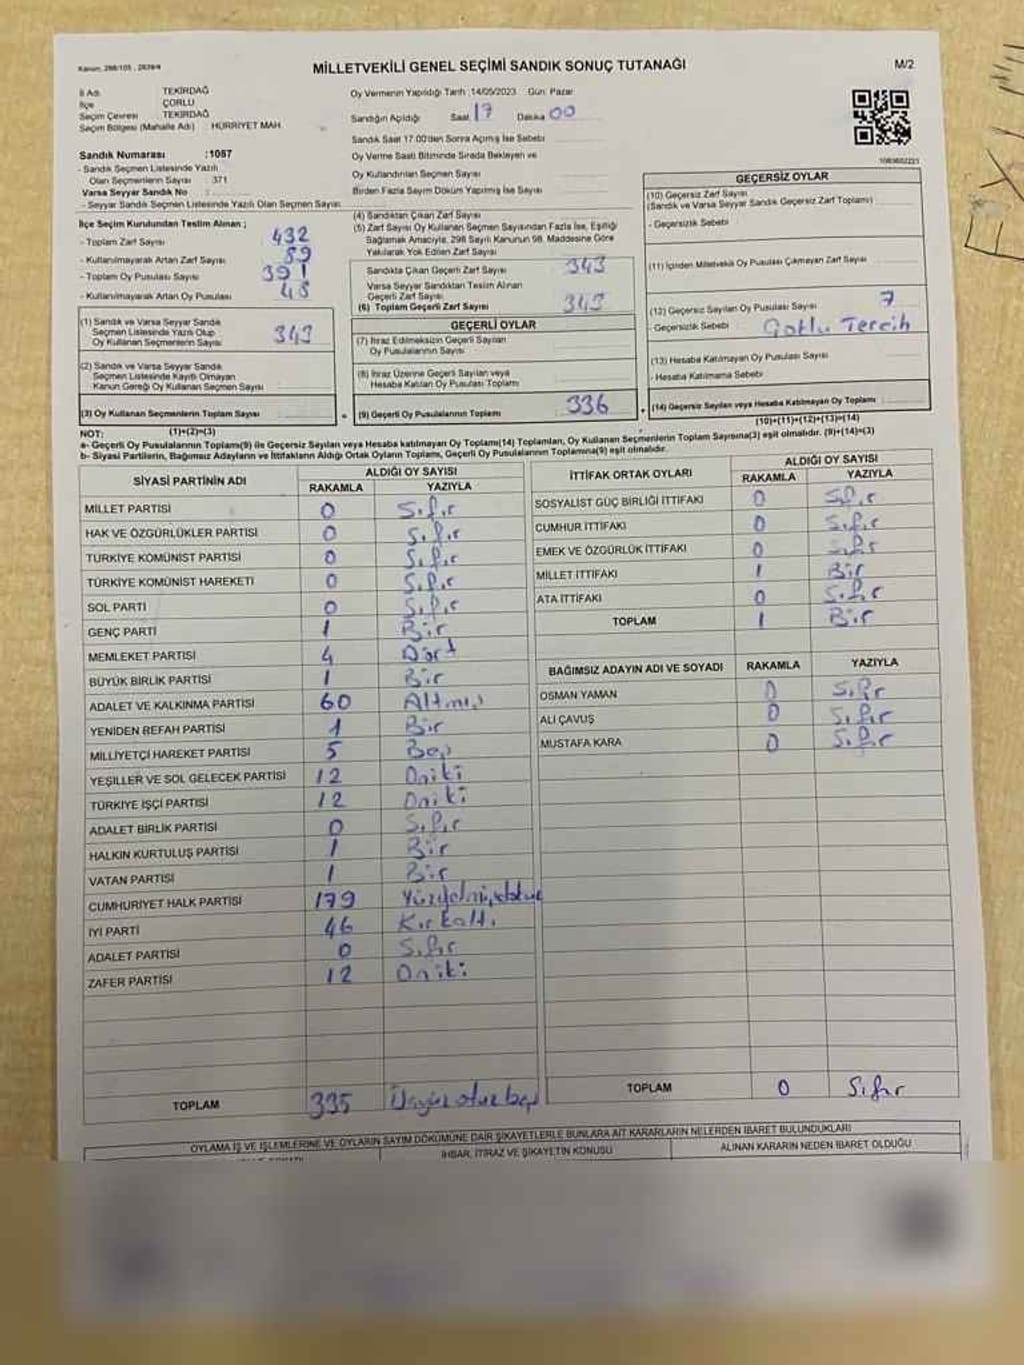 Kanun: 298/105 , 2839/4
MİLLETVEKİLİ GENEL SEÇİMİ SANDIK SONUÇ TUTANAĞI
M/2
İl Adı TEKİRDAĞ
İlçe ÇORLU
Seçim Çevresi TEKİRDAĞ
Seçim Bölgesi (Mahalle Adı) HÜRRİYET MAH.
Sandık Numarası :1057
- Sandık Seçmen Listesinde Yazılı
Olan Seçmenlerin Sayısı : 371
Varsa Seyyar Sandık No :
- Seyyar Sandık Seçmen Listesinde Yazılı Olan Seçmen Sayısı:
Oy Vermenin Yapıldığı Tarih :14/05/2023 Gün: Pazar
Sandığın Açıldığı Saat 17 Dakika 00
Sandık Saat 17:00'den Sonra Açılmış İse Sebebi
Oy Verme Saati Bitiminde Sırada Bekleyen ve
Oy Kullandırılan Seçmen Sayısı
Birden Fazla Sayım Döküm Yapılmış İse Sayısı
İlçe Seçim Kurulundan Teslim Alınan ;
- Toplam Zarf Sayısı 432
- Kullanılmayarak Artan Zarf Sayısı 89
- Toplam Oy Pusulası Sayısı 391
- Kullanılmayarak Artan Oy Pusulası 48
(1) Sandık ve Varsa Seyyar Sandık
Seçmen Listesinde Yazılı Olup
Oy Kullanan Seçmenlerin Sayısı 343
(2) Sandık ve Varsa Seyyar Sandık
Seçmen Listesinde Kayıtlı Olmayan
Kanun Gereği Oy Kullanan Seçmen Sayısı
(3) Oy Kullanan Seçmenlerin Toplam Sayısı
(1)+(2)=(3)
(4) Sandıktan Çıkan Zarf Sayısı
(5) Zarf Sayısı Oy Kullanan Seçmen Sayısından Fazla İse, Eşitliği
Sağlamak Amacıyla, 298 Sayılı Kanunun 98. Maddesine Göre
Yakılarak Yok Edilen Zarf Sayısı
Sandıkta Çıkan Geçerli Zarf Sayısı 343
Varsa Seyyar Sandıktan Teslim Alınan
Geçerli Zarf Sayısı
(6) Toplam Geçerli Zarf Sayısı 343
GEÇERLİ OYLAR
(7) İtiraz Edilmeksizin Geçerli Sayılan
Oy Pusulalarının Sayısı
(8) İtiraz Üzerine Geçerli Sayılan veya
Hesaba Katılan Oy Pusulası Toplamı
(9) Geçerli Oy Pusulalarının Toplamı 336
GEÇERSİZ OYLAR
(10) Geçersiz Zarf Sayısı
(Sandık ve Varsa Seyyar Sandık Geçersiz Zarf Toplamı)
- Geçersizlik Sebebi
(11) İçinden Milletvekili Oy Pusulası Çıkmayan Zarf Sayısı
(12) Geçersiz Sayılan Oy Pusulası Sayısı 7
- Geçersizlik Sebebi Çoklu Tercih
(13) Hesaba Katılmayan Oy Pusulası Sayısı
- Hesaba Katılmama Sebebi
(14) Geçersiz Sayılan veya Hesaba Katılmayan Oy Toplamı
(10)+(11)+(12)+(13)=(14)
NOT:
a- Geçerli Oy Pusulalarının Toplamı(9) ile Geçersiz Sayılan veya Hesaba katılmayan Oy Toplamı(14) Toplamları, Oy Kullanan Seçmenlerin Toplam Sayısına(3) eşit olmalıdır. (9)+(14)=(3)
b- Siyasi Partilerin, Bağımsız Adayların ve İttifakların Aldığı Ortak Oyların Toplamı, Geçerli Oy Pusulalarının Toplamına(9) eşit olmalıdır.
SİYASİ PARTİNİN ADI ALDIĞI OY SAYISI
RAKAMLA YAZIYLA
MİLLET PARTİSİ 0 Sıfır
HAK VE ÖZGÜRLÜKLER PARTİSİ 0 Sıfır
TÜRKİYE KOMÜNİST PARTİSİ 0 Sıfır
TÜRKİYE KOMÜNİST HAREKETİ 0 Sıfır
SOL PARTİ 0 Sıfır
GENÇ PARTİ 1 Bir
MEMLEKET PARTİSİ 4 Dört
BÜYÜK BİRLİK PARTİSİ 1 Bir
ADALET VE KALKINMA PARTİSİ 60 Altmış
YENİDEN REFAH PARTİSİ 1 Bir
MİLLİYETÇİ HAREKET PARTİSİ 5 Beş
YEŞİLLER VE SOL GELECEK PARTİSİ 12 Oniki
TÜRKİYE İŞÇİ PARTİSİ 12 Oniki
ADALET BİRLİK PARTİSİ 0 Sıfır
HALKIN KURTULUŞ PARTİSİ 1 Bir
VATAN PARTİSİ 1 Bir
CUMHURİYET HALK PARTİSİ 179
İYİ PARTİ 46 Kırkaltı
ADALET PARTİSİ 0 Sıfır
ZAFER PARTİSİ 12 Oniki
TOPLAM 335 Üçyüzotuzbeş
İTTİFAK ORTAK OYLARI ALDIĞI OY SAYISI
RAKAMLA YAZIYLA
SOSYALİST GÜÇ BİRLİĞİ İTTİFAKI 0 Sıfır
CUMHUR İTTİFAKI 0 Sıfır
EMEK VE ÖZGÜRLÜK İTTİFAKI 0 Sıfır
MİLLET İTTİFAKI 1 Bir
ATA İTTİFAKI 0 Sıfır
TOPLAM 1 Bir
BAĞIMSIZ ADAYIN ADI VE SOYADI RAKAMLA YAZIYLA
OSMAN YAMAN 0 Sıfır
ALİ ÇAVUŞ 0 Sıfır
MUSTAFA KARA 0 Sıfır
TOPLAM 0 Sıfır
OYLAMA İŞ VE İŞLEMLERİNE VE OYLARIN SAYIM DÖKÜMÜNE DAİR ŞİKAYETLERLE BUNLARA AİT KARARLARIN NELERDEN İBARET BULUNDUKLARI
İHBAR, İTİRAZ VE ŞİKAYETİN KONUSU
ALINAN KARARIN NEDEN İBARET OLDUĞU